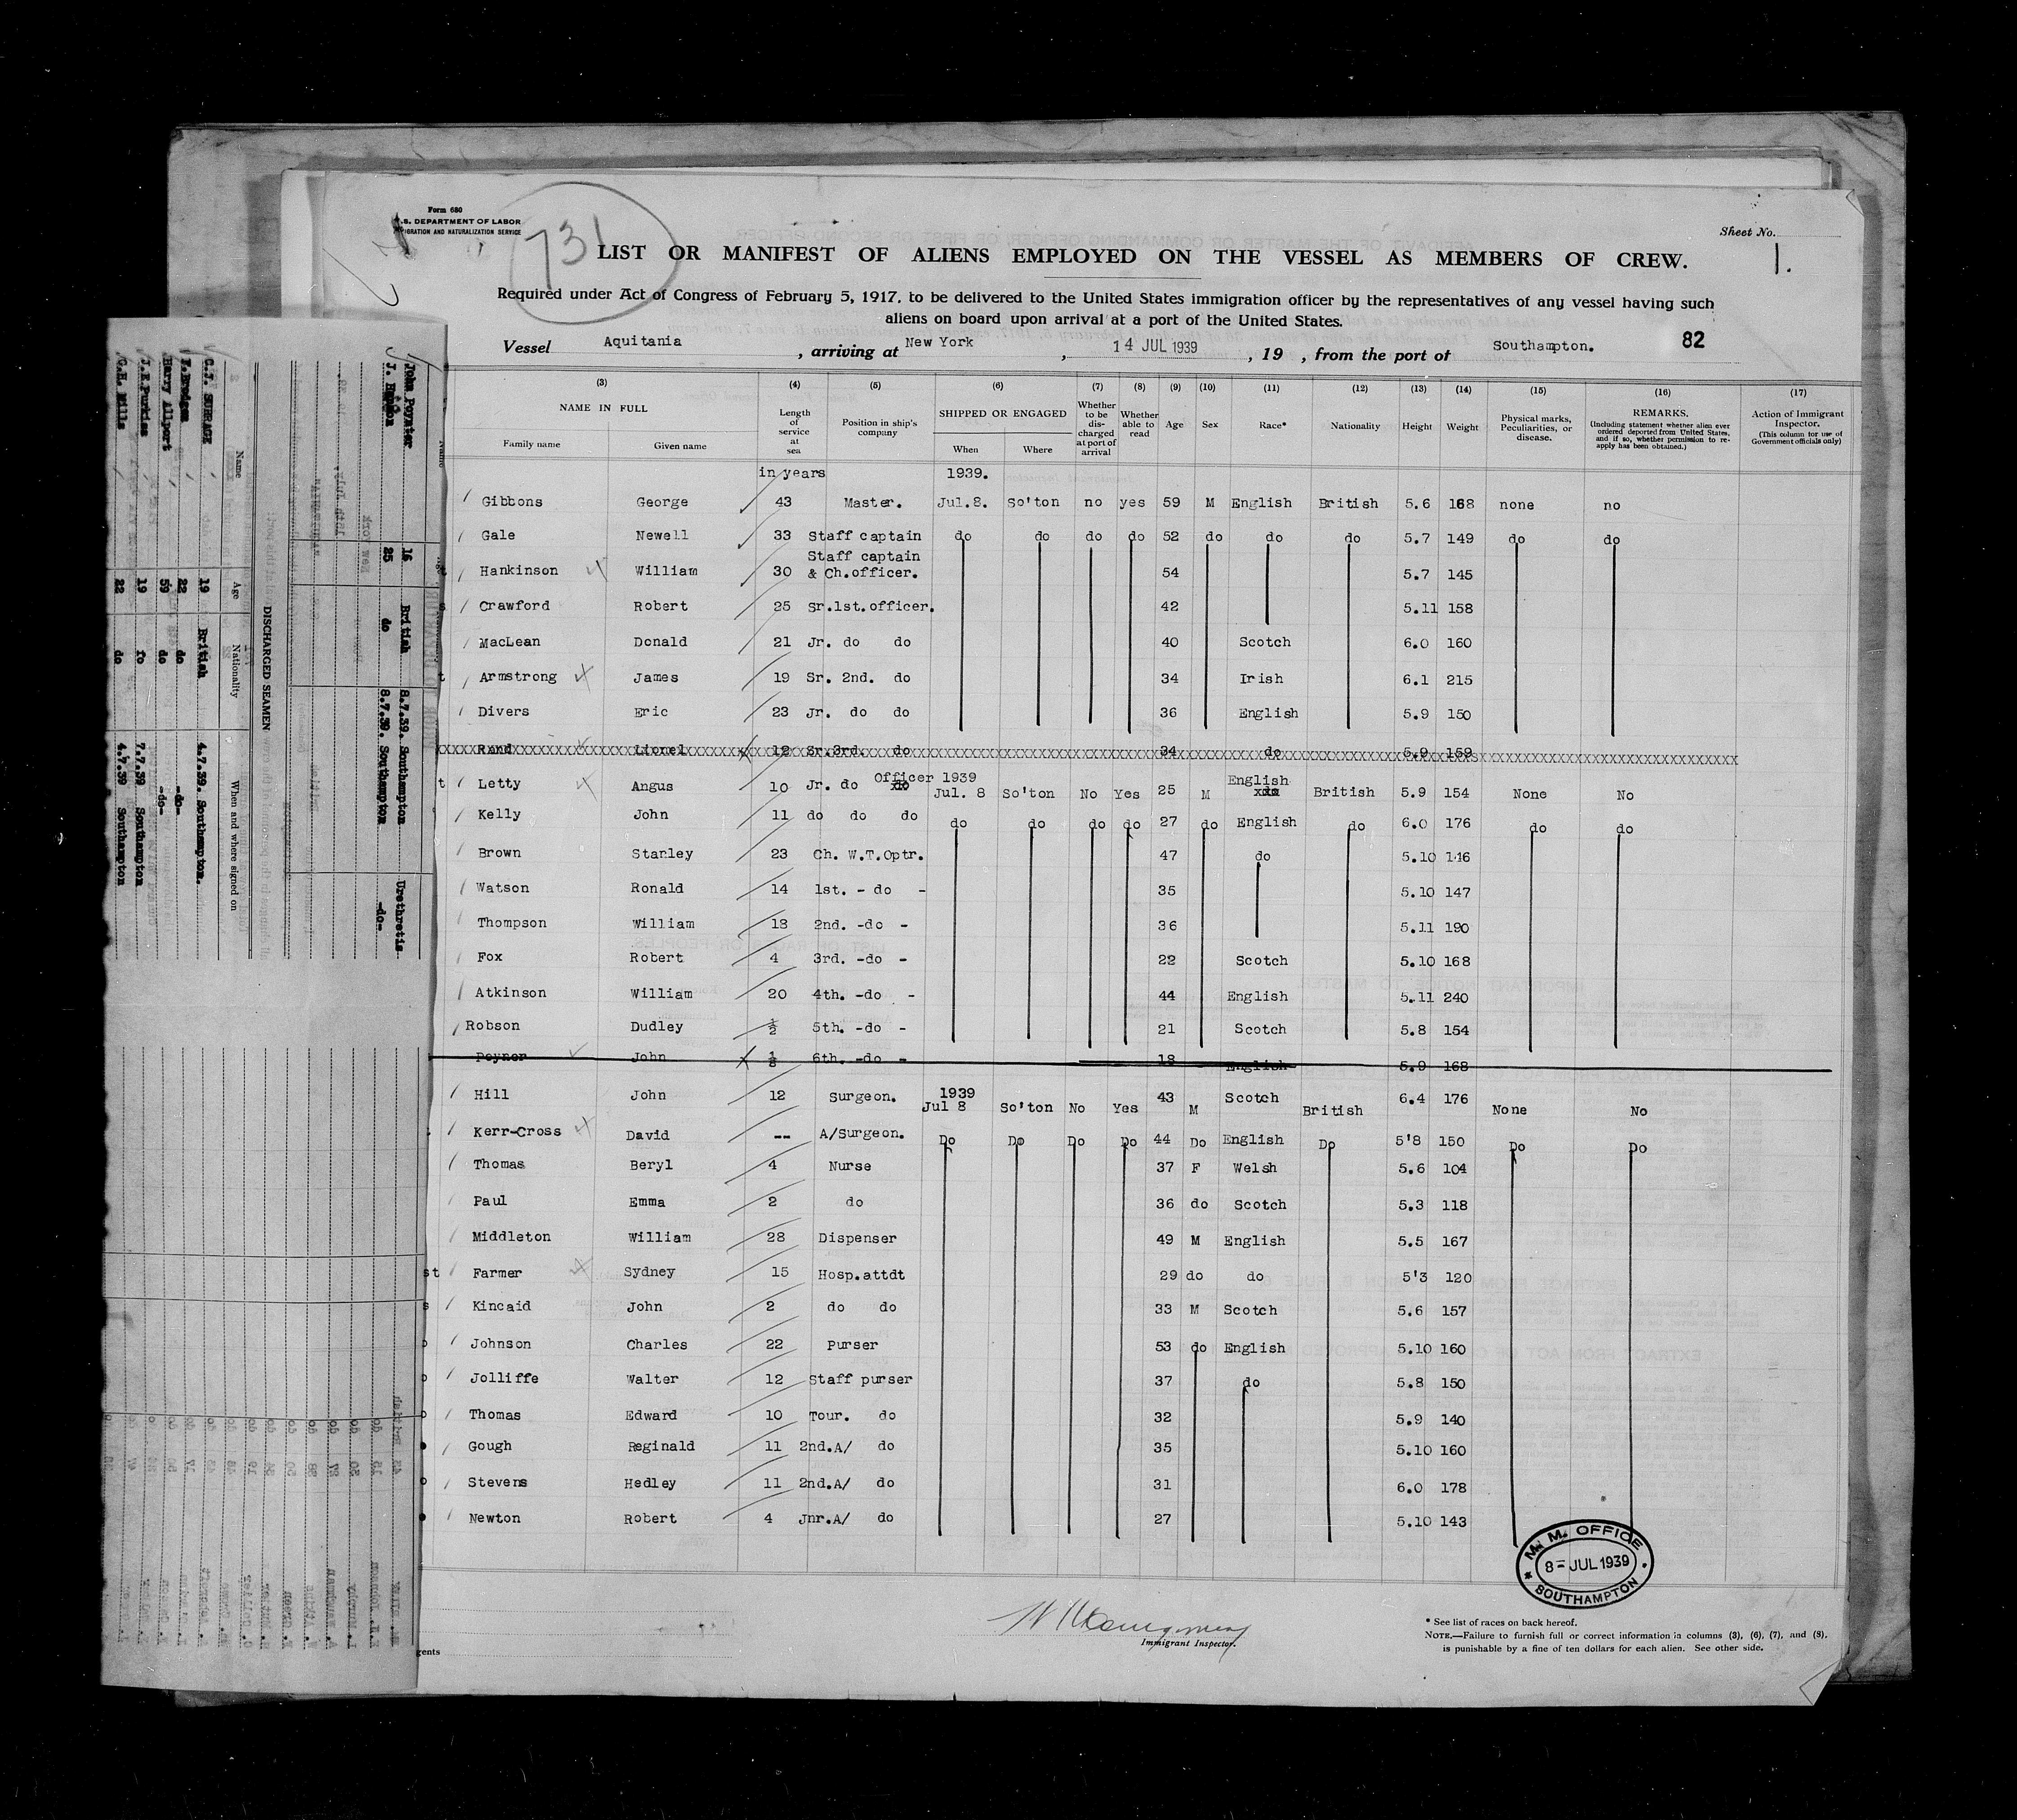 Form 680
U.S. DEPARTMENT OF LABOR
IMMIGRATION AND NATURALIZATION SERVICE
731
Sheet No.
1.
LIST OR MANIFEST OF ALIENS EMPLOYED ON THE VESSEL AS MEMBERS OF CREW.
Required under Act of Congress of February 5, 1917, to be delivered to the United States immigration officer by the representatives of any vessel having such
aliens on board upon arrival at a port of the United States.
82
Vessel Aquitania , arriving at New York , 14 JUL 1939 , 19 , from the port of Southampton.
(3) (4) (5) (6) (7) (8) (9) (10) (11) (12) (13) (14) (15) (16) (17)
NAME IN FULL
Family name Given name
Length of service at sea
Position in ship's company
SHIPPED OR ENGAGED
When Where
Whether to be discharged at port of arrival
Whether able to read
Age Sex Race* Nationality Height Weight
Physical marks, Peculiarities, or disease.
REMARKS.
(Including statement whether alien ever ordered deported from United States, and if so, whether permission to reapply has been obtained.)
Action of Immigrant Inspector.
(This column for use of Government officials only)
in years 1939.
Gibbons George 43 Master. Jul.8. So'ton no yes 59 M English British 5.6 168 none no
Gale Newell 33 Staff captain do do do do 52 do do do 5.7 149 do do
Hankinson William 30 Staff captain & Ch.officer. 54 5.7 145
Crawford Robert 25 Sr.1st.officer. 42 5.11 158
MacLean Donald 21 Jr. do do 40 Scotch 6.0 160
Armstrong James 19 Sr. 2nd. do 34 Irish 6.1 215
Divers Eric 23 Jr. do do 36 English 5.9 150
Rand Lionel 12 Sr.3rd. do 34 do 5.9 159
Letty Angus 10 Jr. do Officer 1939 Jul. 8 So'ton No Yes 25 M English British 5.9 154 None No
Kelly John 11 do do do do do do do 27 do English do 6.0 176 do do
Brown Stanley 23 Ch. W.T.Optr. 47 do 5.10 146
Watson Ronald 14 1st. - do - 35 5.10 147
Thompson William 18 2nd. -do - 36 5.11 190
Fox Robert 4 3rd. -do - 22 Scotch 5.10 168
Atkinson William 20 4th. -do - 44 English 5.11 240
Robson Dudley ½ 5th. -do - 21 Scotch 5.8 154
Poyner John ½ 6th. -do - 18 English 5.9 168
Hill John 12 Surgeon. 1939 Jul 8 So'ton No Yes 43 M Scotch British 6.4 176 None No
Kerr-Cross David -- A/Surgeon. Do Do Do Do 44 Do English Do 5'8 150 Do Do
Thomas Beryl 4 Nurse 37 F Welsh 5.6 104
Paul Emma 2 do 36 do Scotch 5.3 118
Middleton William 28 Dispenser 49 M English 5.5 167
Farmer Sydney 15 Hosp.attdt 29 do do 5'3 120
Kincaid John 2 do do 33 M Scotch 5.6 157
Johnson Charles 22 Purser 53 do English 5.10 160
Jolliffe Walter 12 Staff purser 37 do 5.8 150
Thomas Edward 10 Tour. do 32 5.9 140
Gough Reginald 11 2nd.A/ do 35 5.10 160
Stevens Hedley 11 2nd.A/ do 31 6.0 178
Newton Robert 4 Jnr.A/ do 27 5.10 143
M. M. OFFICE
8 - JUL 1939
SOUTHAMPTON
Immigrant Inspector.
* See list of races on back hereof.
NOTE.—Failure to furnish full or correct information in columns (3), (6), (7), and (8),
is punishable by a fine of ten dollars for each alien. See other side.
gents
John Poynter 16 British 8.7.39. Southampton Urethretis
J. Hanson 25 do 8.7.39. Southampton -do-
DISCHARGED SEAMEN
Name Age Nationality When and where signed on
C.J. SURRAGE 19 British 4.7.39. Southampton.
22 do -do-
Harry Allport 59 do -do-
J.E.Purkiss 19 7.7.39 Southampton
G.H. Mills 22 do 4.7.39 Southampton